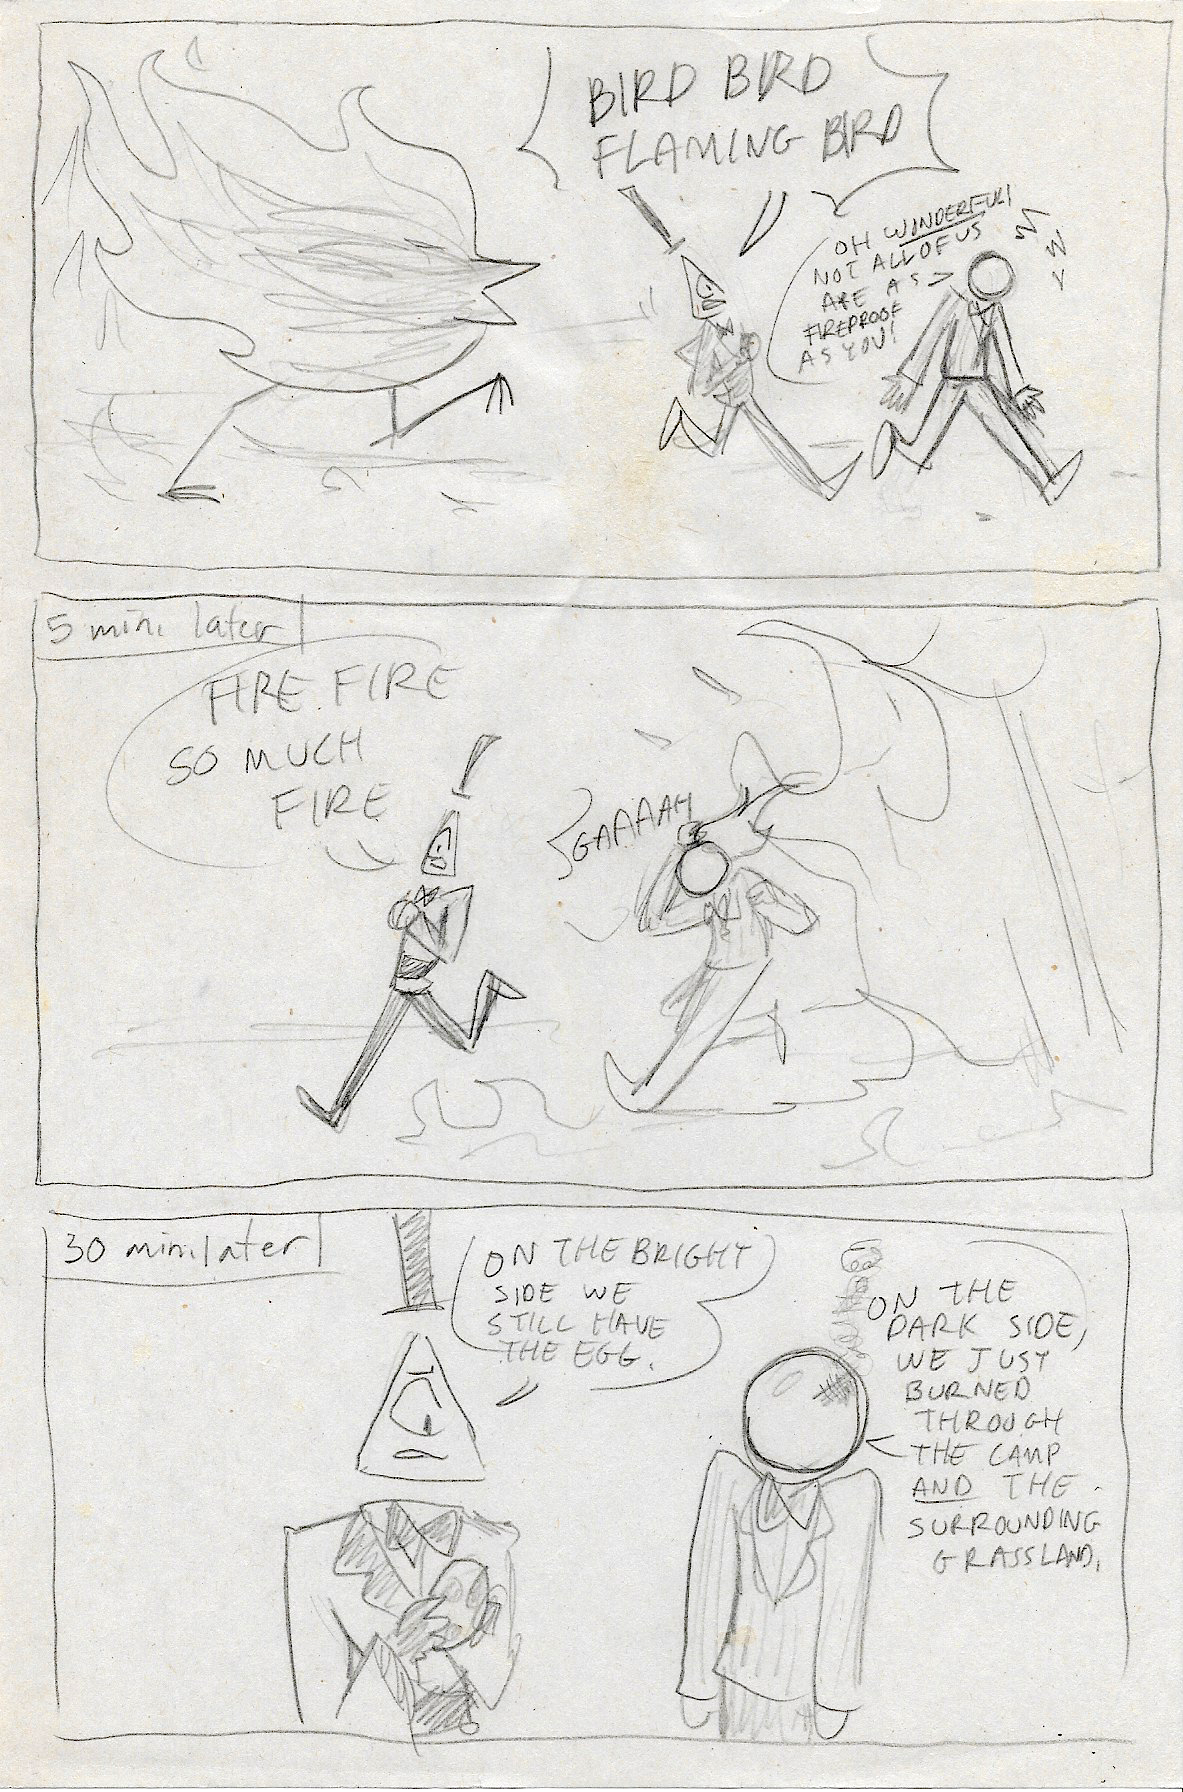 BIRD BIRD
FLAMING BIRD
OH WONDERFUL!
NOT ALL OF US
ARE AS
FIREPROOF
AS YOU!
5 min. later
FIRE FIRE
SO MUCH
FIRE
GAAAAAH
30 min. later
ON THE BRIGHT
SIDE WE
STILL HAVE
THE EGG.
ON THE
DARK SIDE,
WE JUST
BURNED
THROUGH
THE CAMP
AND THE
SURROUNDING
GRASSLAND.